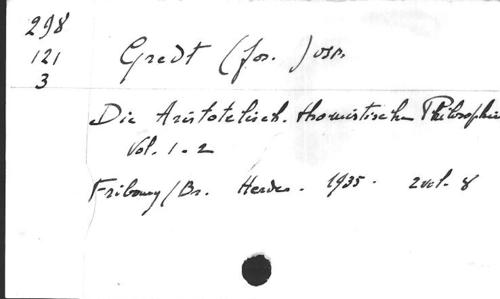 298
121
3
Gredt (Jos.) OSB.
Die Aristotelisch. thomistische Philosophie
Vol. 1-2
Fribourg/Br. Herder. 1935. 2 vol. 8